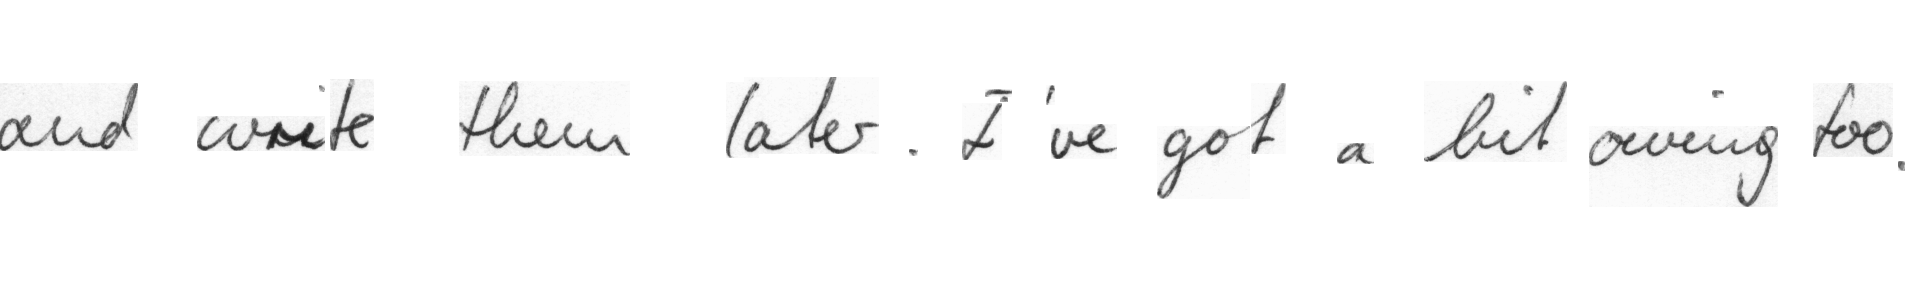 and write them later. I've got a bit owing too.